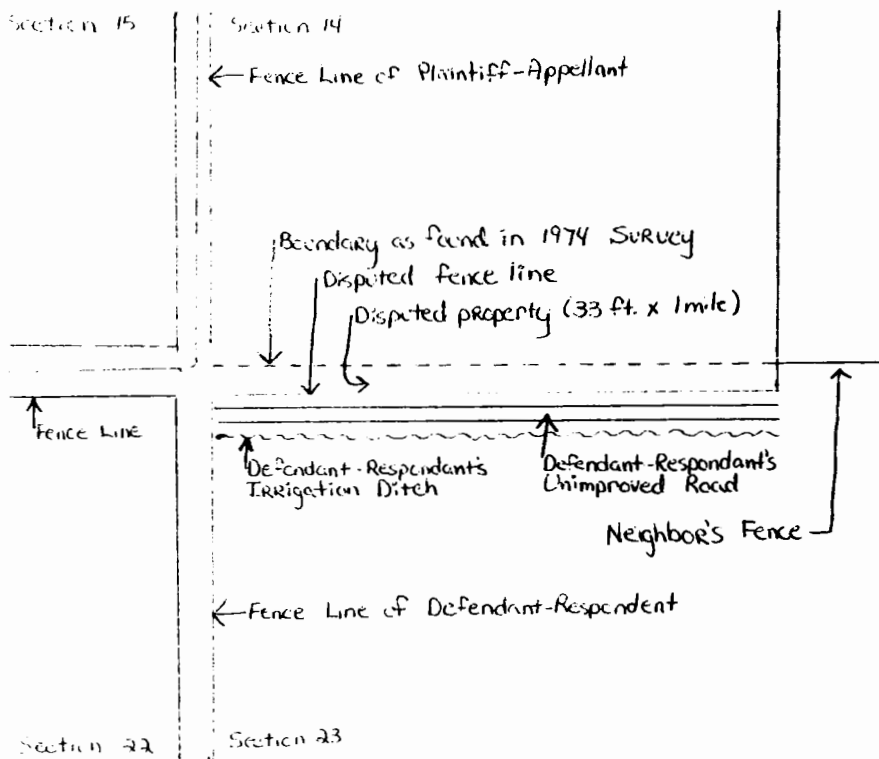 Section 15
Section 14
Fence Line of Plaintiff-Appellant
Boundary as found in 1974 SURVEY
Disputed fence line
Disputed property (33 ft. x 1 mile)
Fence Line
Defendant-Respondant's
Irrigation Ditch
Defendant-Respondant's
Unimproved Road
Neighbor's Fence
Fence Line of Defendant-Respondent
Section 22
Section 23